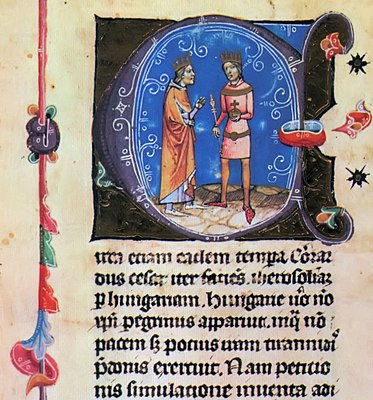 Circa eciam eadem tempa. Cōra
dus cesar iter faciēs iherosolimā
p hungariam. Hungarie uo nō
xpi pegrinus apparuit. inq nō
pacem sꝫ pocius iram tirannidē
pdonis exercuit. Nam peticio
nis simulacione inuenta adi